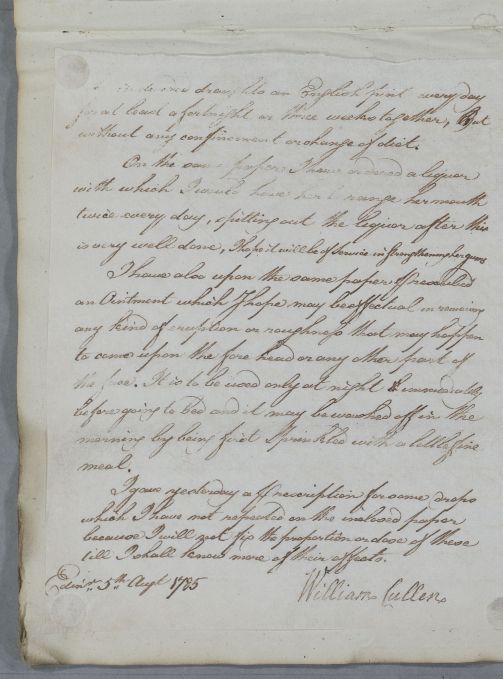 drawn to an English pint every day
for at least a fortnight or three weeks together, But
without any confinement or change of diet.
On the same paper I have ordered a liquor
with which I would have her to range her mouth
twice every day, spitting out the liquor after this
is very well done, I hope it will be of service in strengthening her gums
I have also upon the same paper prescribed
an Ointment which I hope may be effectual in removing
any kind of eruption or roughness that may happen
to come upon the fore head or any other part of
the face. It is to be used only at night & immediately
before going to Bed and it may be washed off in the
morning by being first Sprinkled with a little fine
meal.
I gave yesterday a prescription for some drops
which I have not repeated on the inclosed paper
because I will not fix the proportion or dose of these
till I shall know more of their effects.
Edinr. 5th Augt 1785 William Cullen